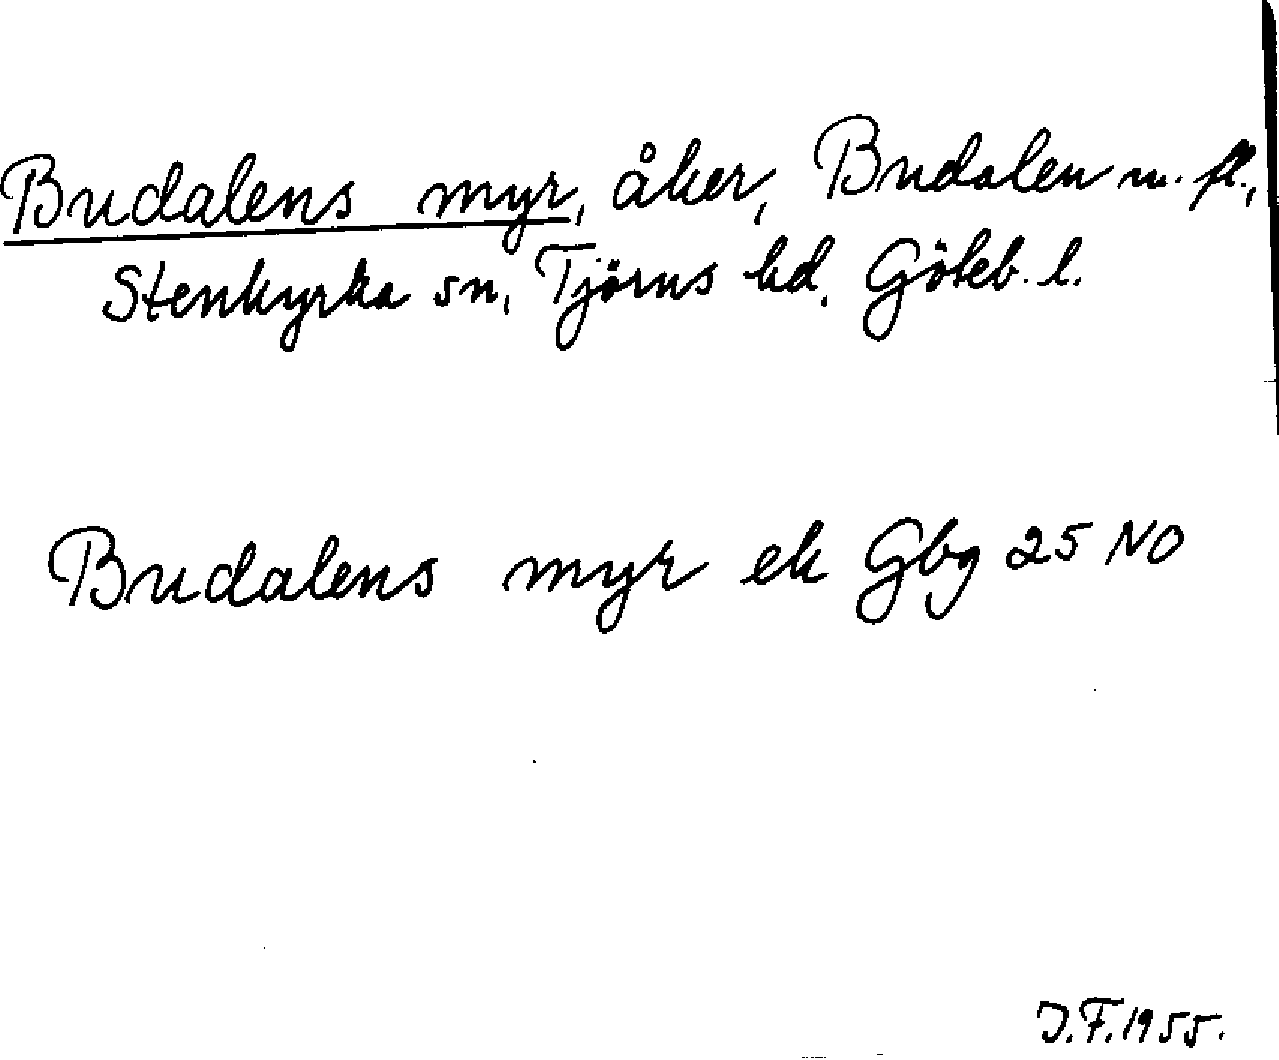 Budalens myr, åker, Budalen m. fl.,
Stenkyrka sn, Tjörns hd, Göteb. l.
Budalens myr ek Gbg 25 NO
J.F. 1955.